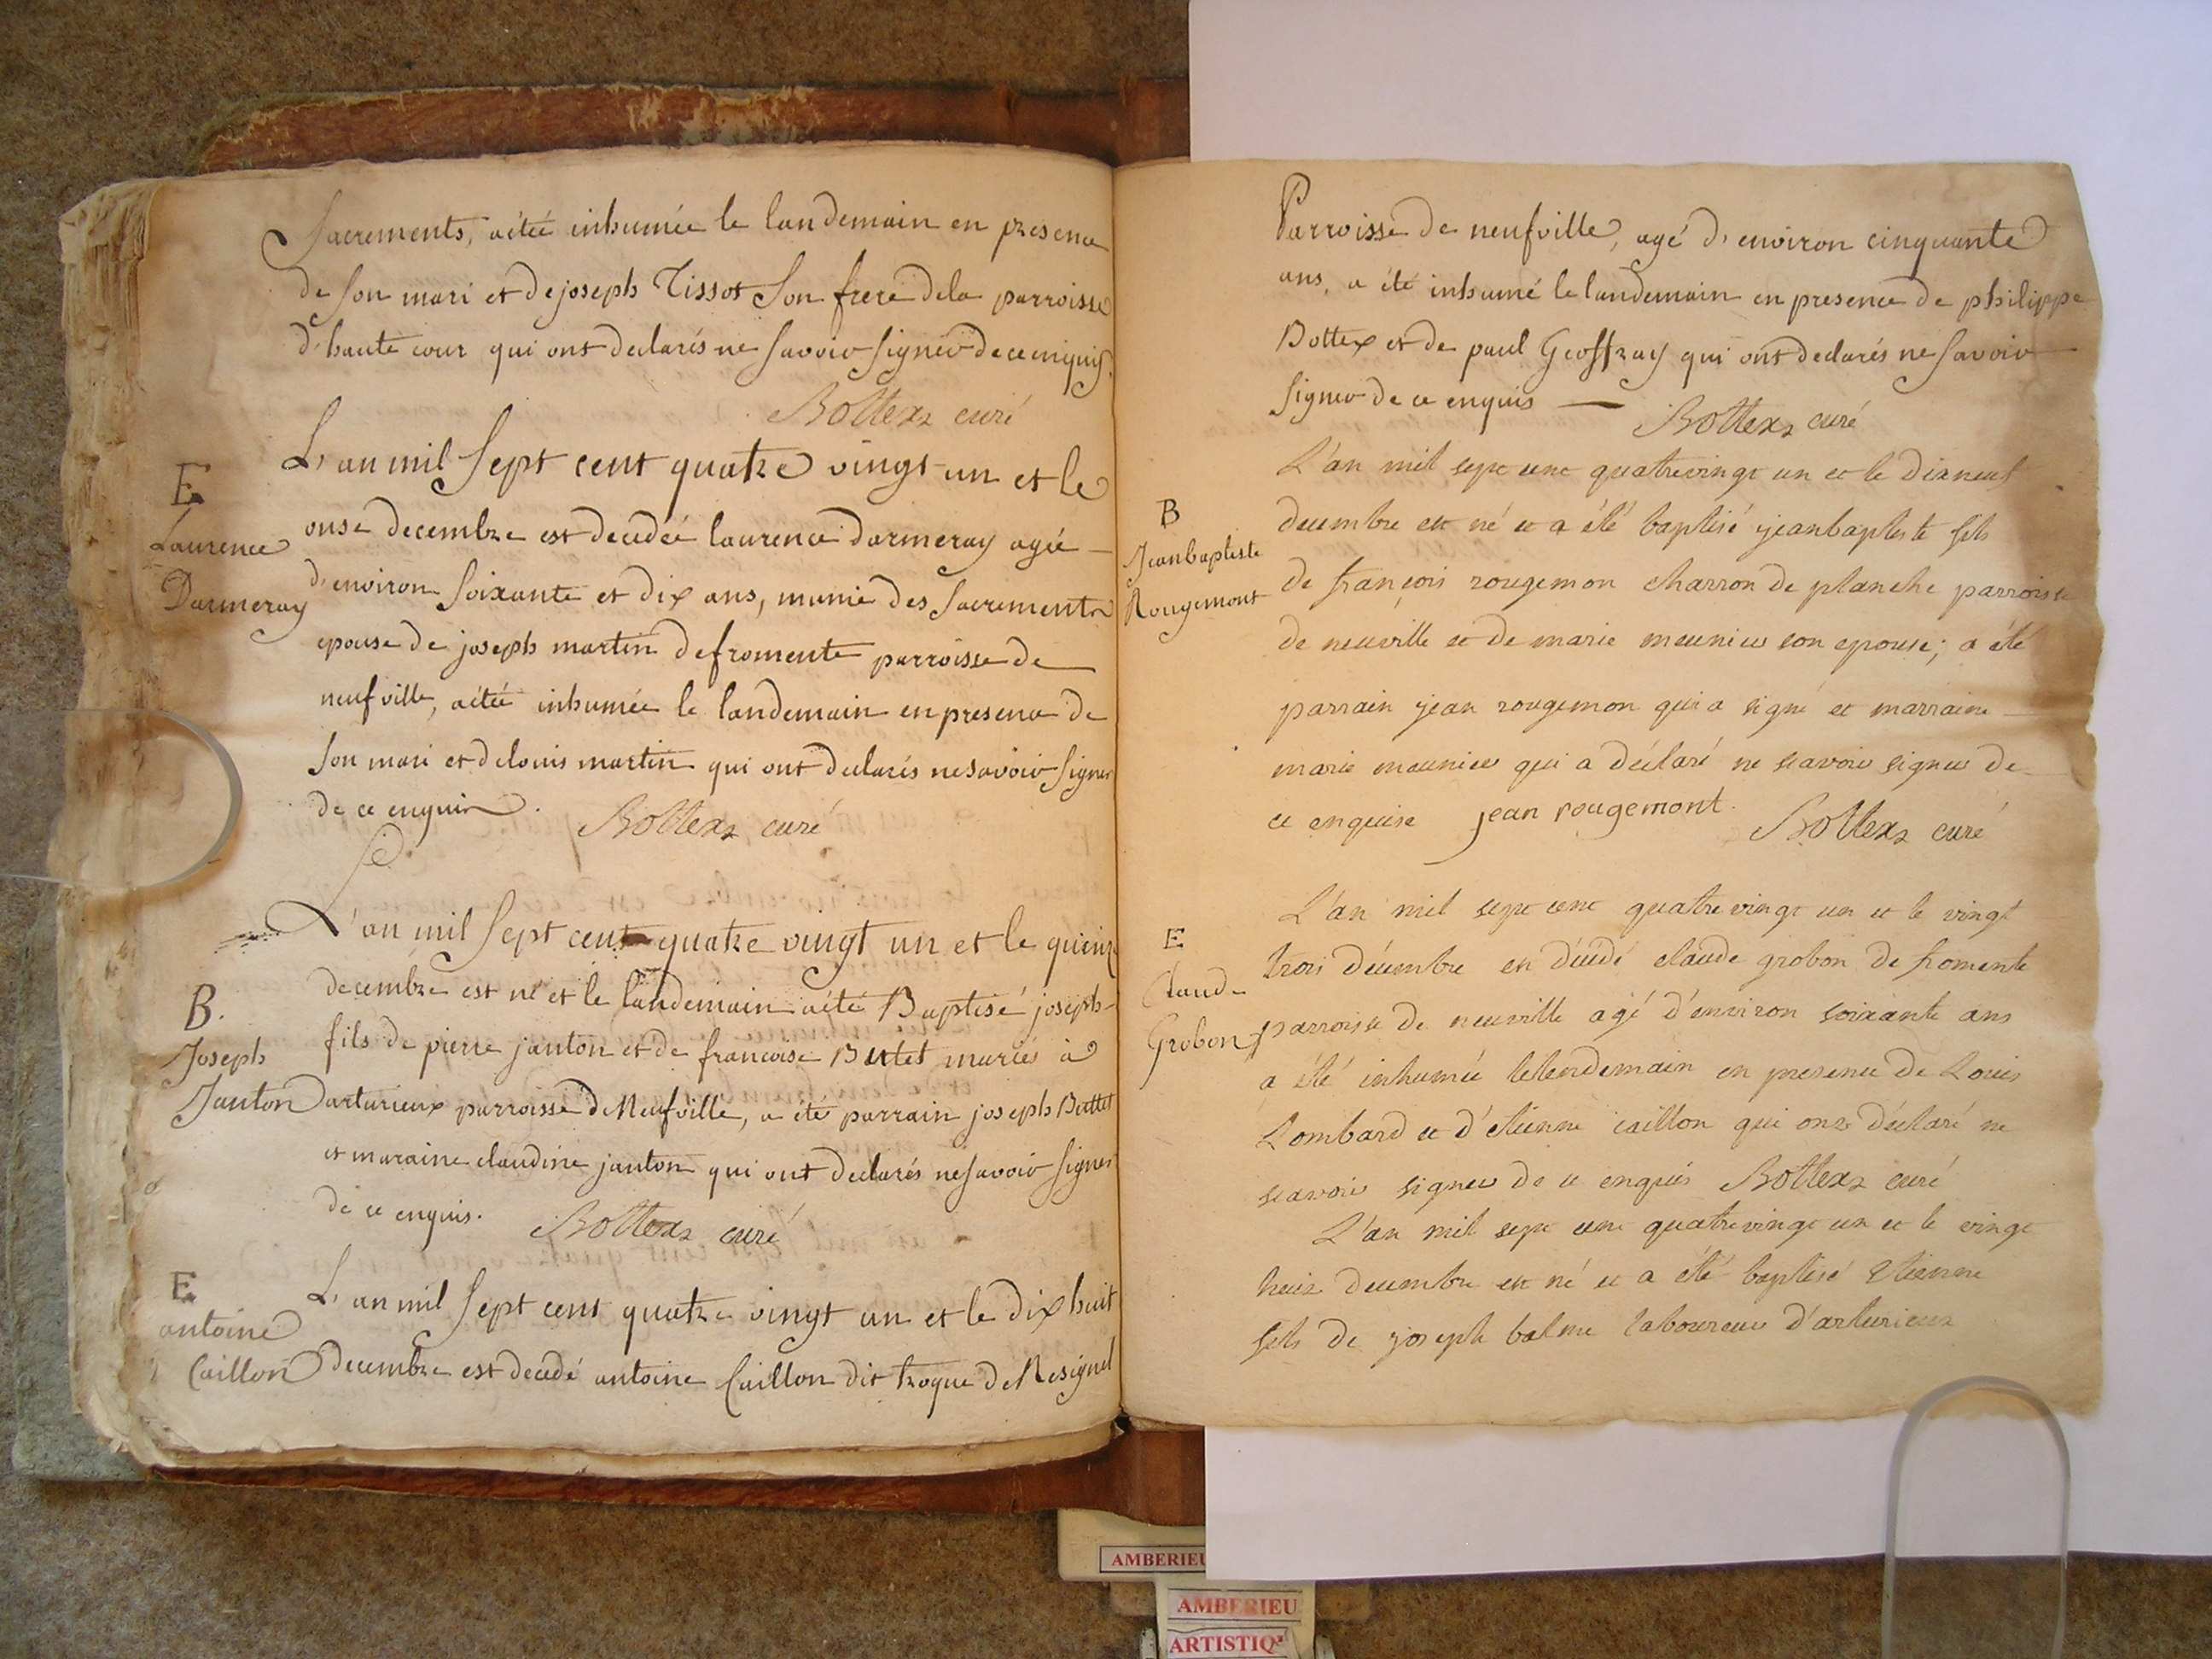 Sacrements, aété inhumée le landemain en presence
de son mari et de joseph Tissot son frere dela parroisse
d'haute cour qui ont declarés ne savoir signer de ce enquis.
Bottex curé
L'an mil sept cent quatre vingt un et le
E
Laurence
Darmeray
onse decembre est decedée laurence darmeray agée
d'environ soixante et dix ans, munie des sacrements
epouse de joseph martin de fromente parroisse de
neufville, aété inhumée le landemain en presence de
son mari et de louis martin qui ont declarés ne savoir signer
de ce enquis.
Bottex curé
L'an mil sept cent quatre vingt un et le quinze
B.
Joseph
Janton
decembre est né et le landemain aété Baptisé joseph
fils de pierre janton et de francoise Butet mariés à
artarieux parroisse de Neufville, a été parrain joseph Buttet
et maraine claudine janton qui ont declarés ne savoir signer
de ce enquis.
Bottex curé
E
antoine
Caillon
L'an mil sept cent quatre vingt un et le dix huit
decembre est decedé antoine Caillon dit troque de Resignel
Parroisse de neufville, agé d'environ cinquante
ans, a été inhumé le landemain en presence de philippe
Bottex et de paul Geoffray qui ont declarés ne savoir
signer de ce enquis
Bottex curé
B
Jeanbaptiste
Rougemont
L'an mil sept cent quatrevingt un et le dixneuf
decembre est né et a été baptisé jeanbaptiste fils
de françois rougemon charron de planche parroisse
de neuville et de marie meunier son epouse; a été
parrain jean rougemon qui a signé et marraine
marie meunier qui a déclaré ne scavoir signer de
ce enquise jean rougemont.
Bottex curé
E
Claude
Grobon
L'an mil sept cent quatre vingt un et le vingt
trois décembre est décédé claude grobon de fromente
parroisse de neuville agé d'environ soixante ans
a été inhumé lelendemain en presence de Louis
Lombard et d'etienne caillon qui ont déclaré ne
scavoir signer de ce enquis Bottex curé
L'an mil sept cent quatrevingt un et le vingt
huit decembre est né et a été baptisé Etienne
fils de joseph balme laboureur d'arturieux
AMBERIEU
AMBERIEU
ARTISTIQ